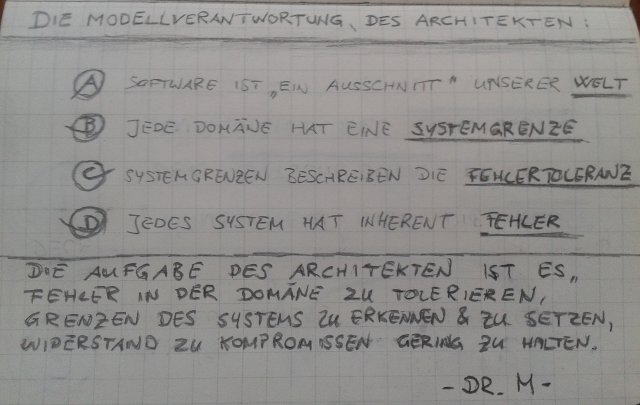 DIE MODELLVERANTWORTUNG DES ARCHITEKTEN:
A SOFTWARE IST „EIN AUSSCHNITT" UNSERER WELT
B JEDE DOMÄNE HAT EINE SYSTEMGRENZE
C SYSTEMGRENZEN BESCHREIBEN DIE FEHLERTOLERANZ
D JEDES SYSTEM HAT INHERENT FEHLER
DIE AUFGABE DES ARCHITEKTEN IST ES,
FEHLER IN DER DOMÄNE ZU TOLERIEREN,
GRENZEN DES SYSTEMS ZU ERKENNEN & ZU SETZEN,
WIDERSTAND ZU KOMPROMISSEN GERING ZU HALTEN.
- DR. M -